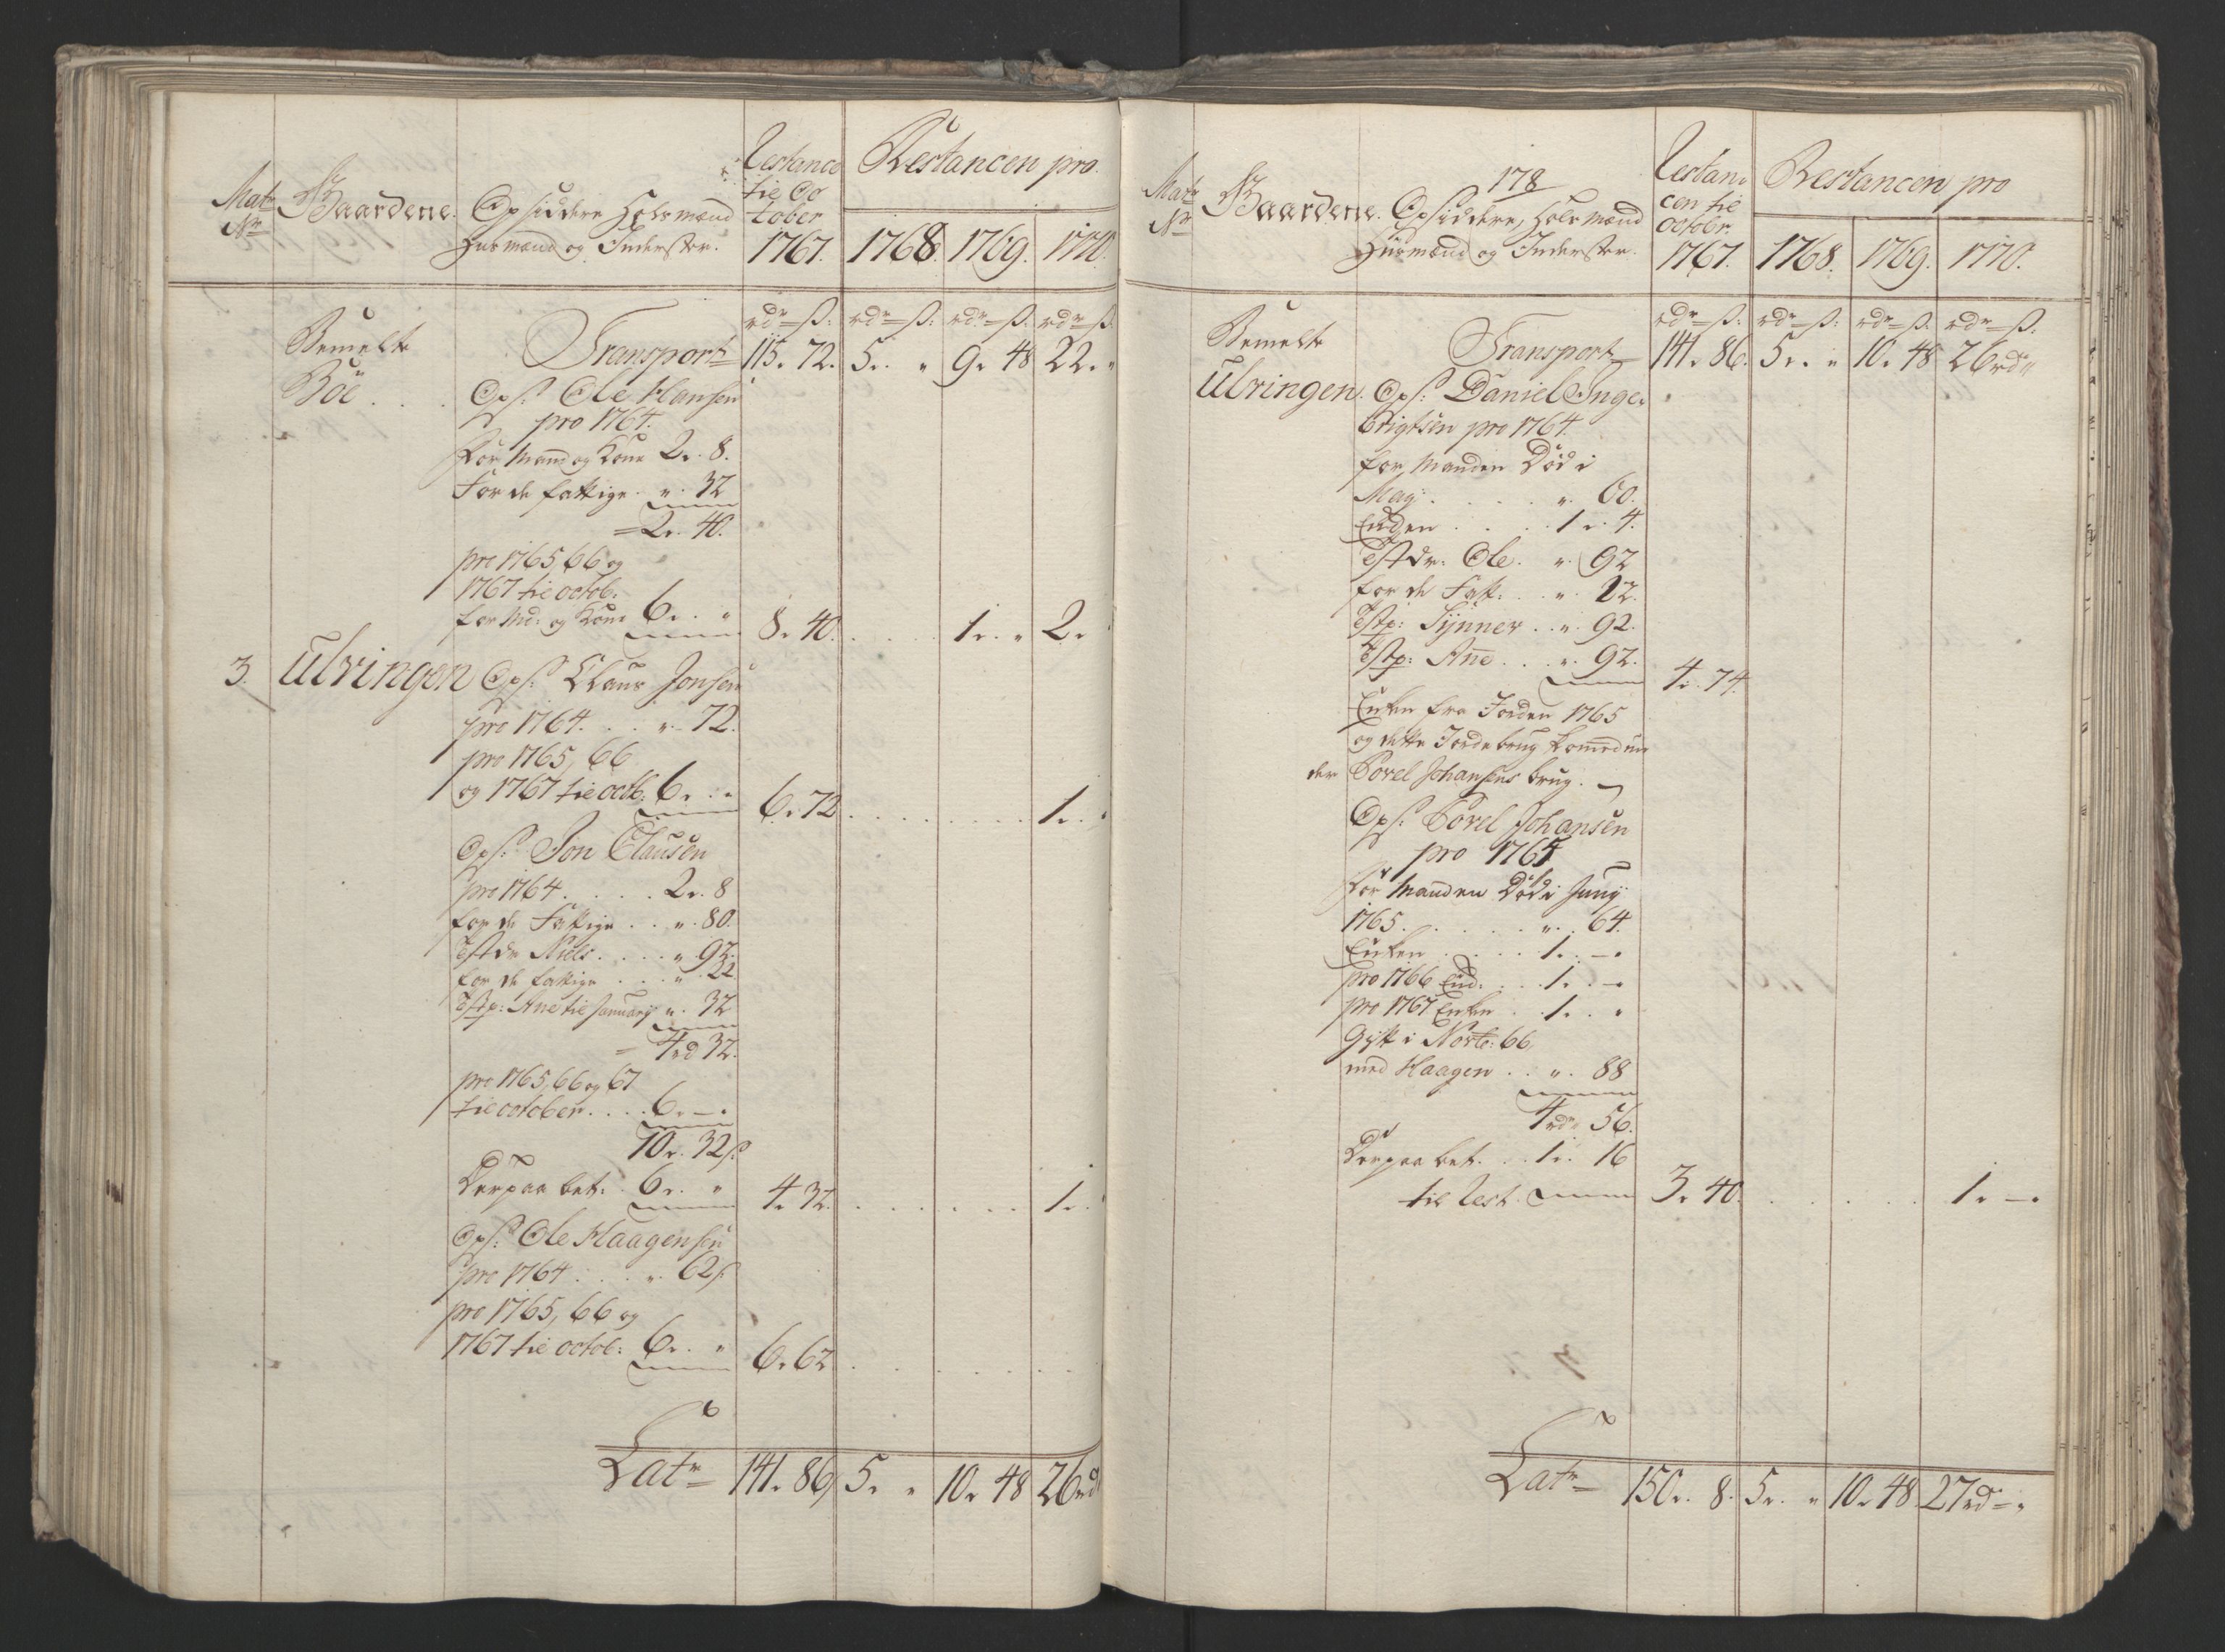 Matr
No
Gaardene.
Opsiddere Holsmænd
Husmænd og Inderster.
Restance
til Oc
tober
1767.
Restancen pro
1768. 1769. 1770.
rdr = ß: rdr = ß: rdr = ß: rdr = ß:
Bemelte
Böe . . .
Transport 115. 72. 5. „ 9. 48 22. „
Ops: Ole Hansen
pro 1764.
For Mand og Kone 2. 8.
For de fattige. „ 32
= 2. 40.
pro 1765, 66 og
1767 til octob:
for Md: og Kone 6. „ 8. 40. . . . 1. „ 2.
3. Ulvingen Ops: Claus Jonsen
pro 1764. . . „ 72.
pro 1765, 66
og 1767 til octb: 6. „ 6. 72 . . . . . . 1. .
Ops: Jon Clausen
pro 1764 . . . . 2. 8
for de Fattige . . „ 80.
Tstdr Niels . . . . „ 92.
for de fattige . . . „ 22
Tstp: Ane til January „ 32
= 4rd 32.
pro 1765, 66 og 67
til october . . . 6. —.
10. 32ß
Derpaa bet: . 6. „ 4. 32. . . . . . . 1. .
Ops: Ole Haagensen
pro 1764 . . . „ 62ß
pro 1765, 66 og
1767 til octob: 6. „ 6. 62 . . . . . .
Latr = 141. 86 5. „ 10. 48 26rd
178
Matr
No
Gaardene.
Opsiddere, Holsmænd
Husmænd og Inderster.
Restan
cen til
octobr.
1767.
Restancen pro
1768. 1769. 1770.
rdr = ß: rdr = ß: rdr = ß. rdr = ß.
Bemelte
Ulvingen.
Transport 141. 86. 5. „ 10. 48 26rd „
Ops: Daniel Inge-
brigtsen pro 1764.
for Manden Död i
May . . . . . „ 60.
Enken . . . . 1. 4.
Tstdr: Ole. „ 92
for de Fatt: . . „ 22.
Tstp: Synner . . „ 92.
Tstp: Ane . . . „ 92. 4. 74.
Enken fra Jorden 1765
og dette Jordebrug kommed un
der Povel Johansens brug.
Ops: Povel Johansen
pro 1764
for Manden Död i Juny
1765. . . . . . „ 64.
Enken . . . . 1. —.
pro 1766 End: . . 1. —.
pro 1767 Enken . 1. . „
Gift i Novbr: 66,
med Haagen . . „ 88
4rdr 56.
Derpaa bet. . . 1. 16
til Rest. 3. 40. . . . . . 1. —.
Latr = 150. 8. 5. „ 10. 48. 27rd = „